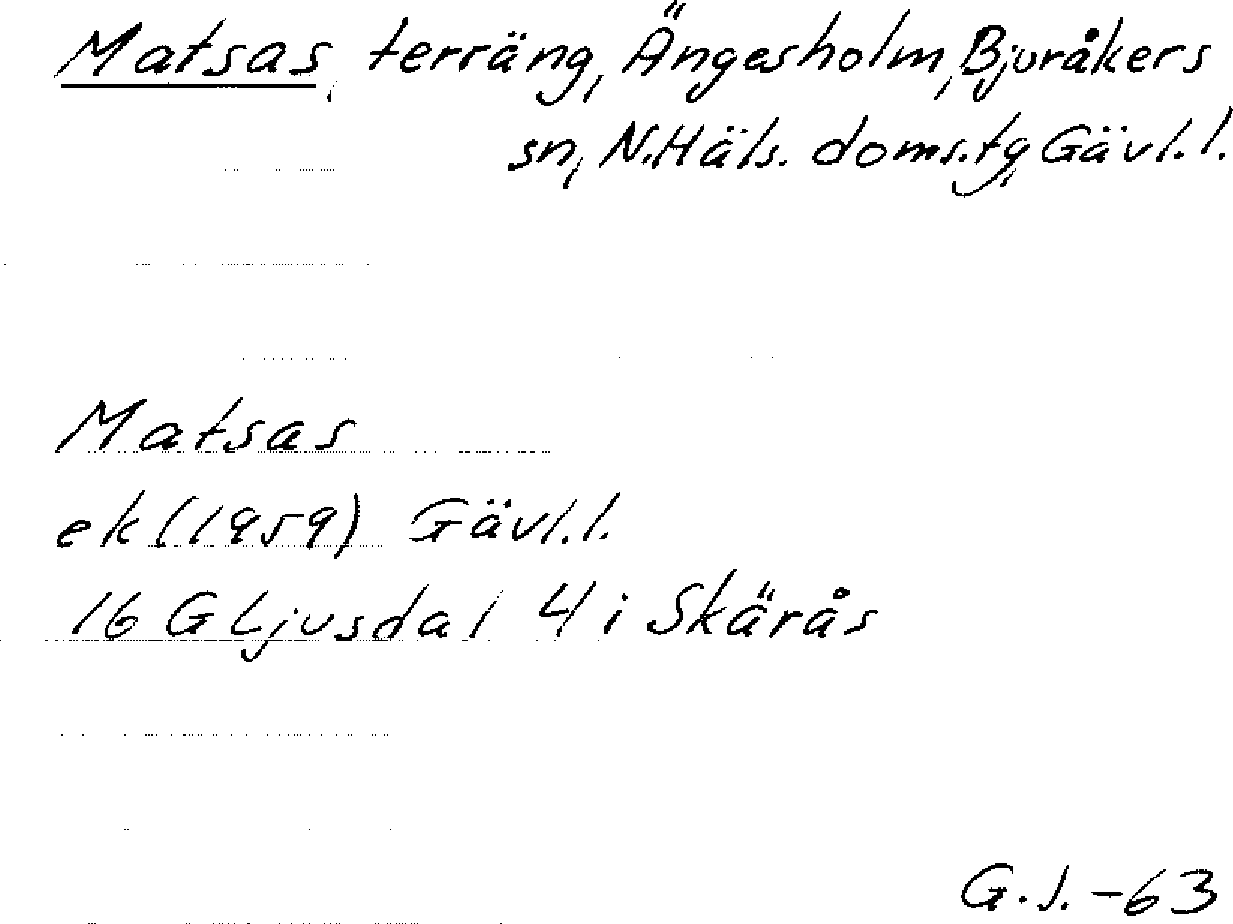 Matsas, terräng, Ängesholm, Bjuråkers
sn, N.Häls. doms.tg, Gävl.l.
Matsas
ek (1959) Gävl.l.
16 G Ljusdal 4 i Skärås
G.J. -63